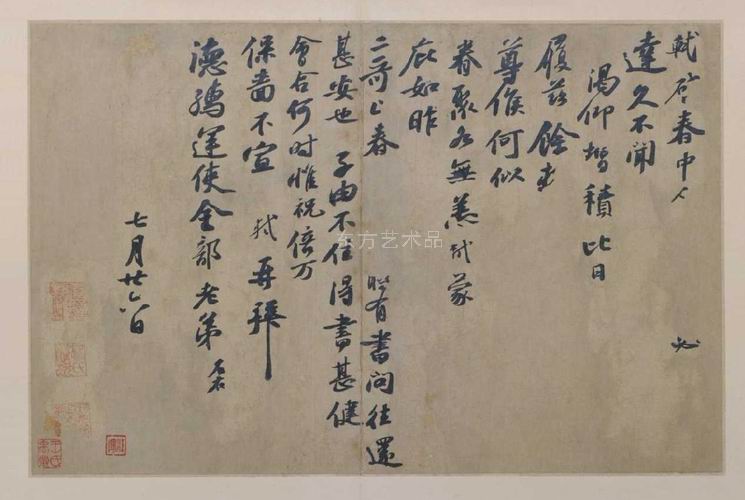 軾啓春中人必
達久不聞
渴仰增積比日
履茲餘
尊候何似
眷聚各無恙軾蒙
庇如昨
二哥上春有書問往還
甚安也子由不住得書甚健
會合何時惟祝倍万
保嗇不宣軾再拜
德孺運使金部老弟
七月廿六日
东方艺术品